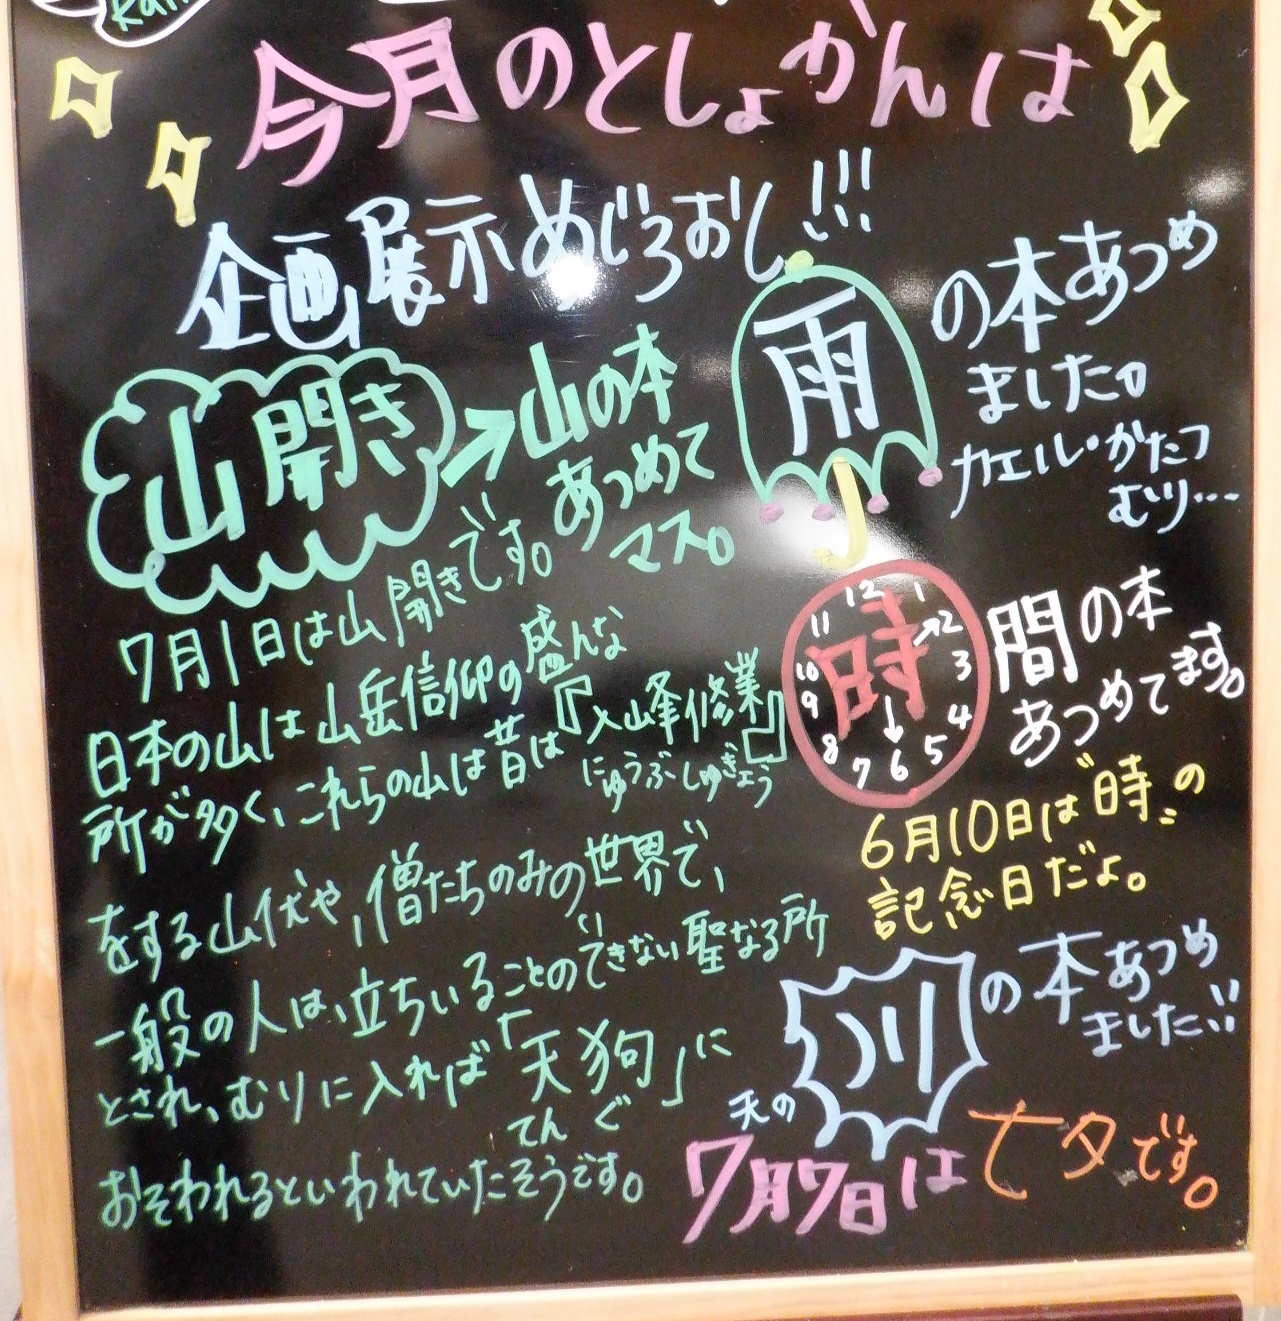 今月のとしょかんは
企画展示めじろおし!!!
山開き→山の本
あつめて
マス。
7月1日は山開きです。
日本の山は山岳信仰の盛んな
所が多く、これらの山は昔は『入山峰修業』
にゅうぶしゅぎょう
をする山伏や、僧たちのみの世界で、
一般の人は、立ちいることのできない聖なる所
い
とされ、むりに入れば「天狗」に
てんぐ
おそわれるといわれていたそうです。
雨の本あつめ
ました。
カエル・かたつ
むり…
時間の本
あつめてます。
12 1 2 3 4 5 6 7 8 9 10 11
6月10日は〝時〟の
記念日だよ。
川の本あつめ
ました!!
天の
7月7日は七夕です。